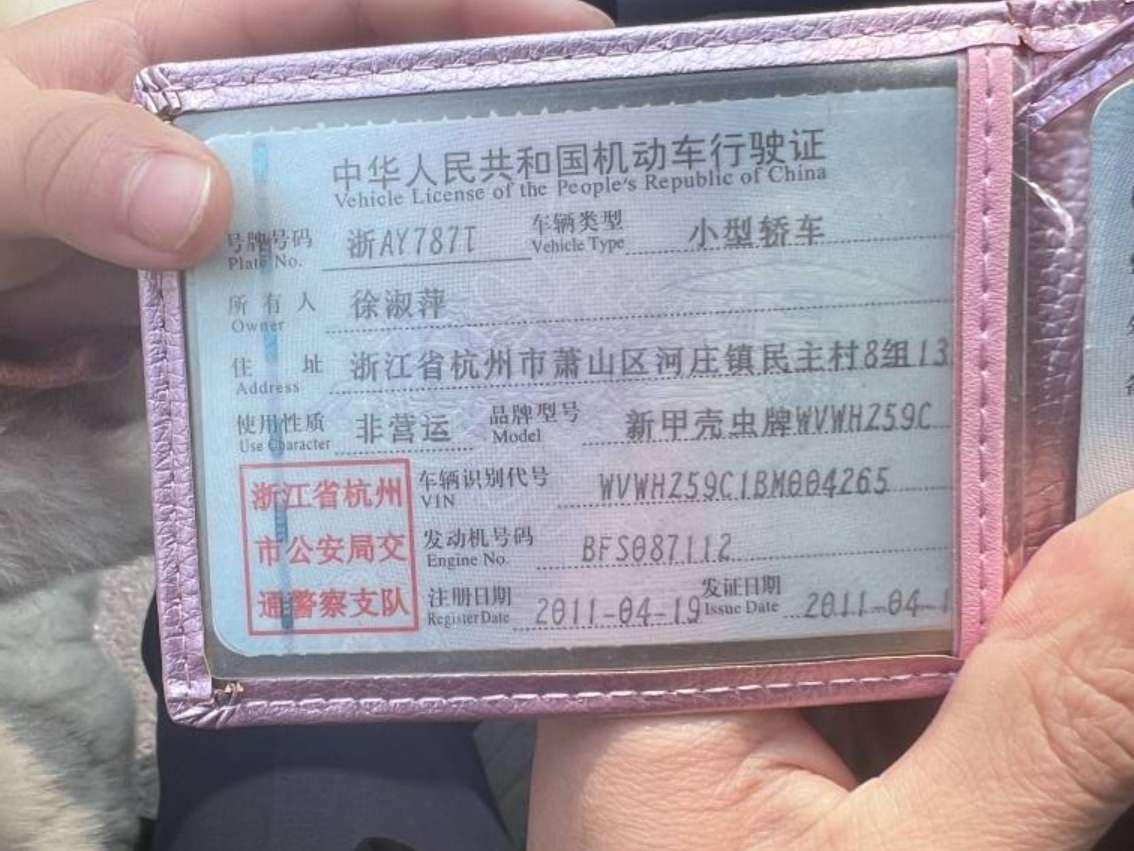 中华人民共和国机动车行驶证
Vehicle License of the People's Republic of China
号牌号码 浙AY787T 车辆类型 小型轿车
Plate No. Vehicle Type
所有人 徐淑萍
Owner
住址 浙江省杭州市萧山区河庄镇民主村8组13
Address
使用性质 非营运 品牌型号 新甲壳虫牌WVWHZ59C
Use Character Model
浙江省杭州 车辆识别代号 WVWHZ59C1BM004265
VIN
市公安局交 发动机号码 BFS087112
Engine No.
通警察支队 注册日期 2011-04-19 发证日期 2011-04-1
Register Date Issue Date